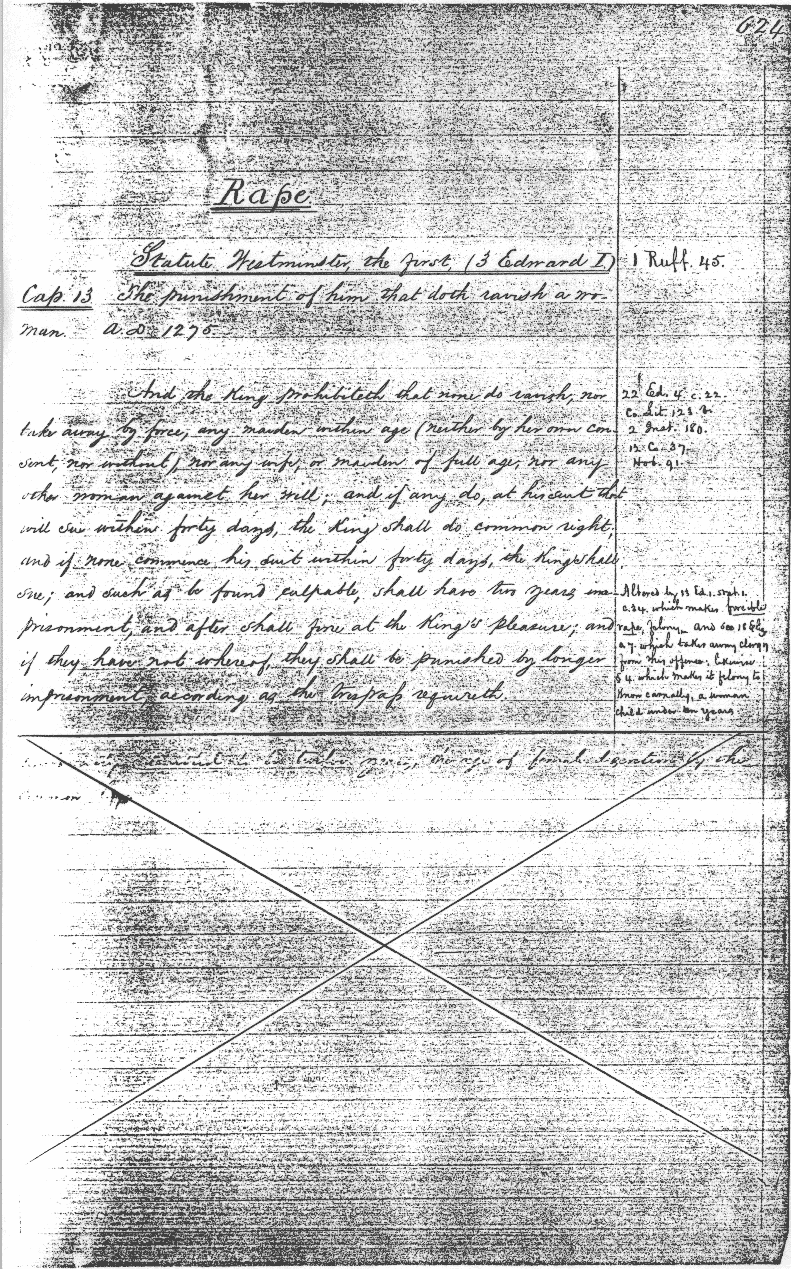 624
Rape.
Statute Westminster, the first, (3 Edward I)
1 Ruff. 45.
Cap. 13 The punishment of him that doth ravish a wo-
man. A.D. 1275
And the King prohibiteth that none do ravish, nor
take away by force, any maiden within age (neither by her own con-
sent, nor without) nor any wife, or maiden of full age, nor any
other woman against her will; and if any do, at his suit that
will sue within forty days, the King shall do common right;
and if none commence his suit within forty days, the King shall
sue; and such as be found culpable, shall have two years im-
prisonment, and after shall fine at the King's pleasure; and
if they have not whereof, they shall be punished by longer
imprisonment, according as the trespass requireth.
22 Ed. 4 c. 22.
Co. Lit. 123 b.
2 Inst. 180.
12 Co. 37.
Hob. 91.
Altered by 13 Ed. 1. stat. 1.
c. 34. which makes forcible
rape, felony, and see 18 Eliz
c. 7. which takes away clergy
from this offence; likewise
§ 4. which makes it felony to
know carnally, a woman
child under ten years
twelve years, the age of female by the